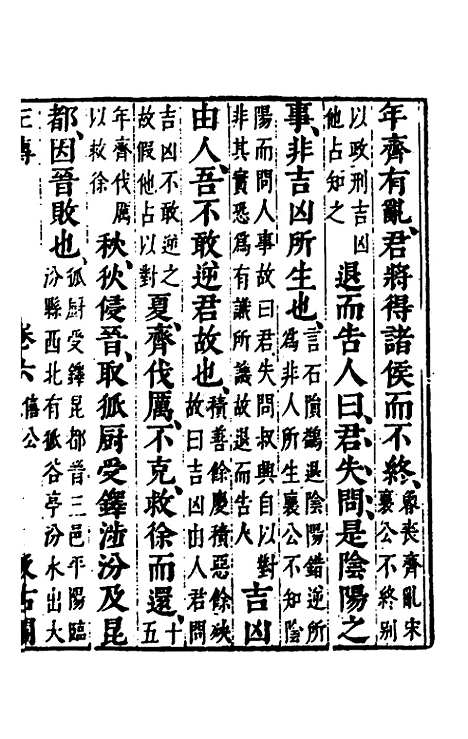 年齊有亂、君將得諸侯而不終、魯喪齊亂宋襄公不終別
以政刑吉凶他占知之退而告人曰、君失問、是陰陽之
事、非吉凶所生也、言石隕鷁退陰陽錯逆所爲非人所生襄公不知陰
陽而問人事故曰君失問叔興自以對非其實恐爲有識所譏故退而告人吉凶
由人、吾不敢逆君故也、積善餘慶積惡餘殃故曰吉凶由人君問
吉凶不敢逆之故假他占以對夏、齊伐厲、不克、救徐而還、十五
年齊伐厲以救徐秋、狄侵晉、取狐廚受鐸涉汾及昆
都、因晉敗也、狐廚受鐸昆都晉三邑平陽臨汾縣西北有狐谷亭汾水出大
卷六 僖公